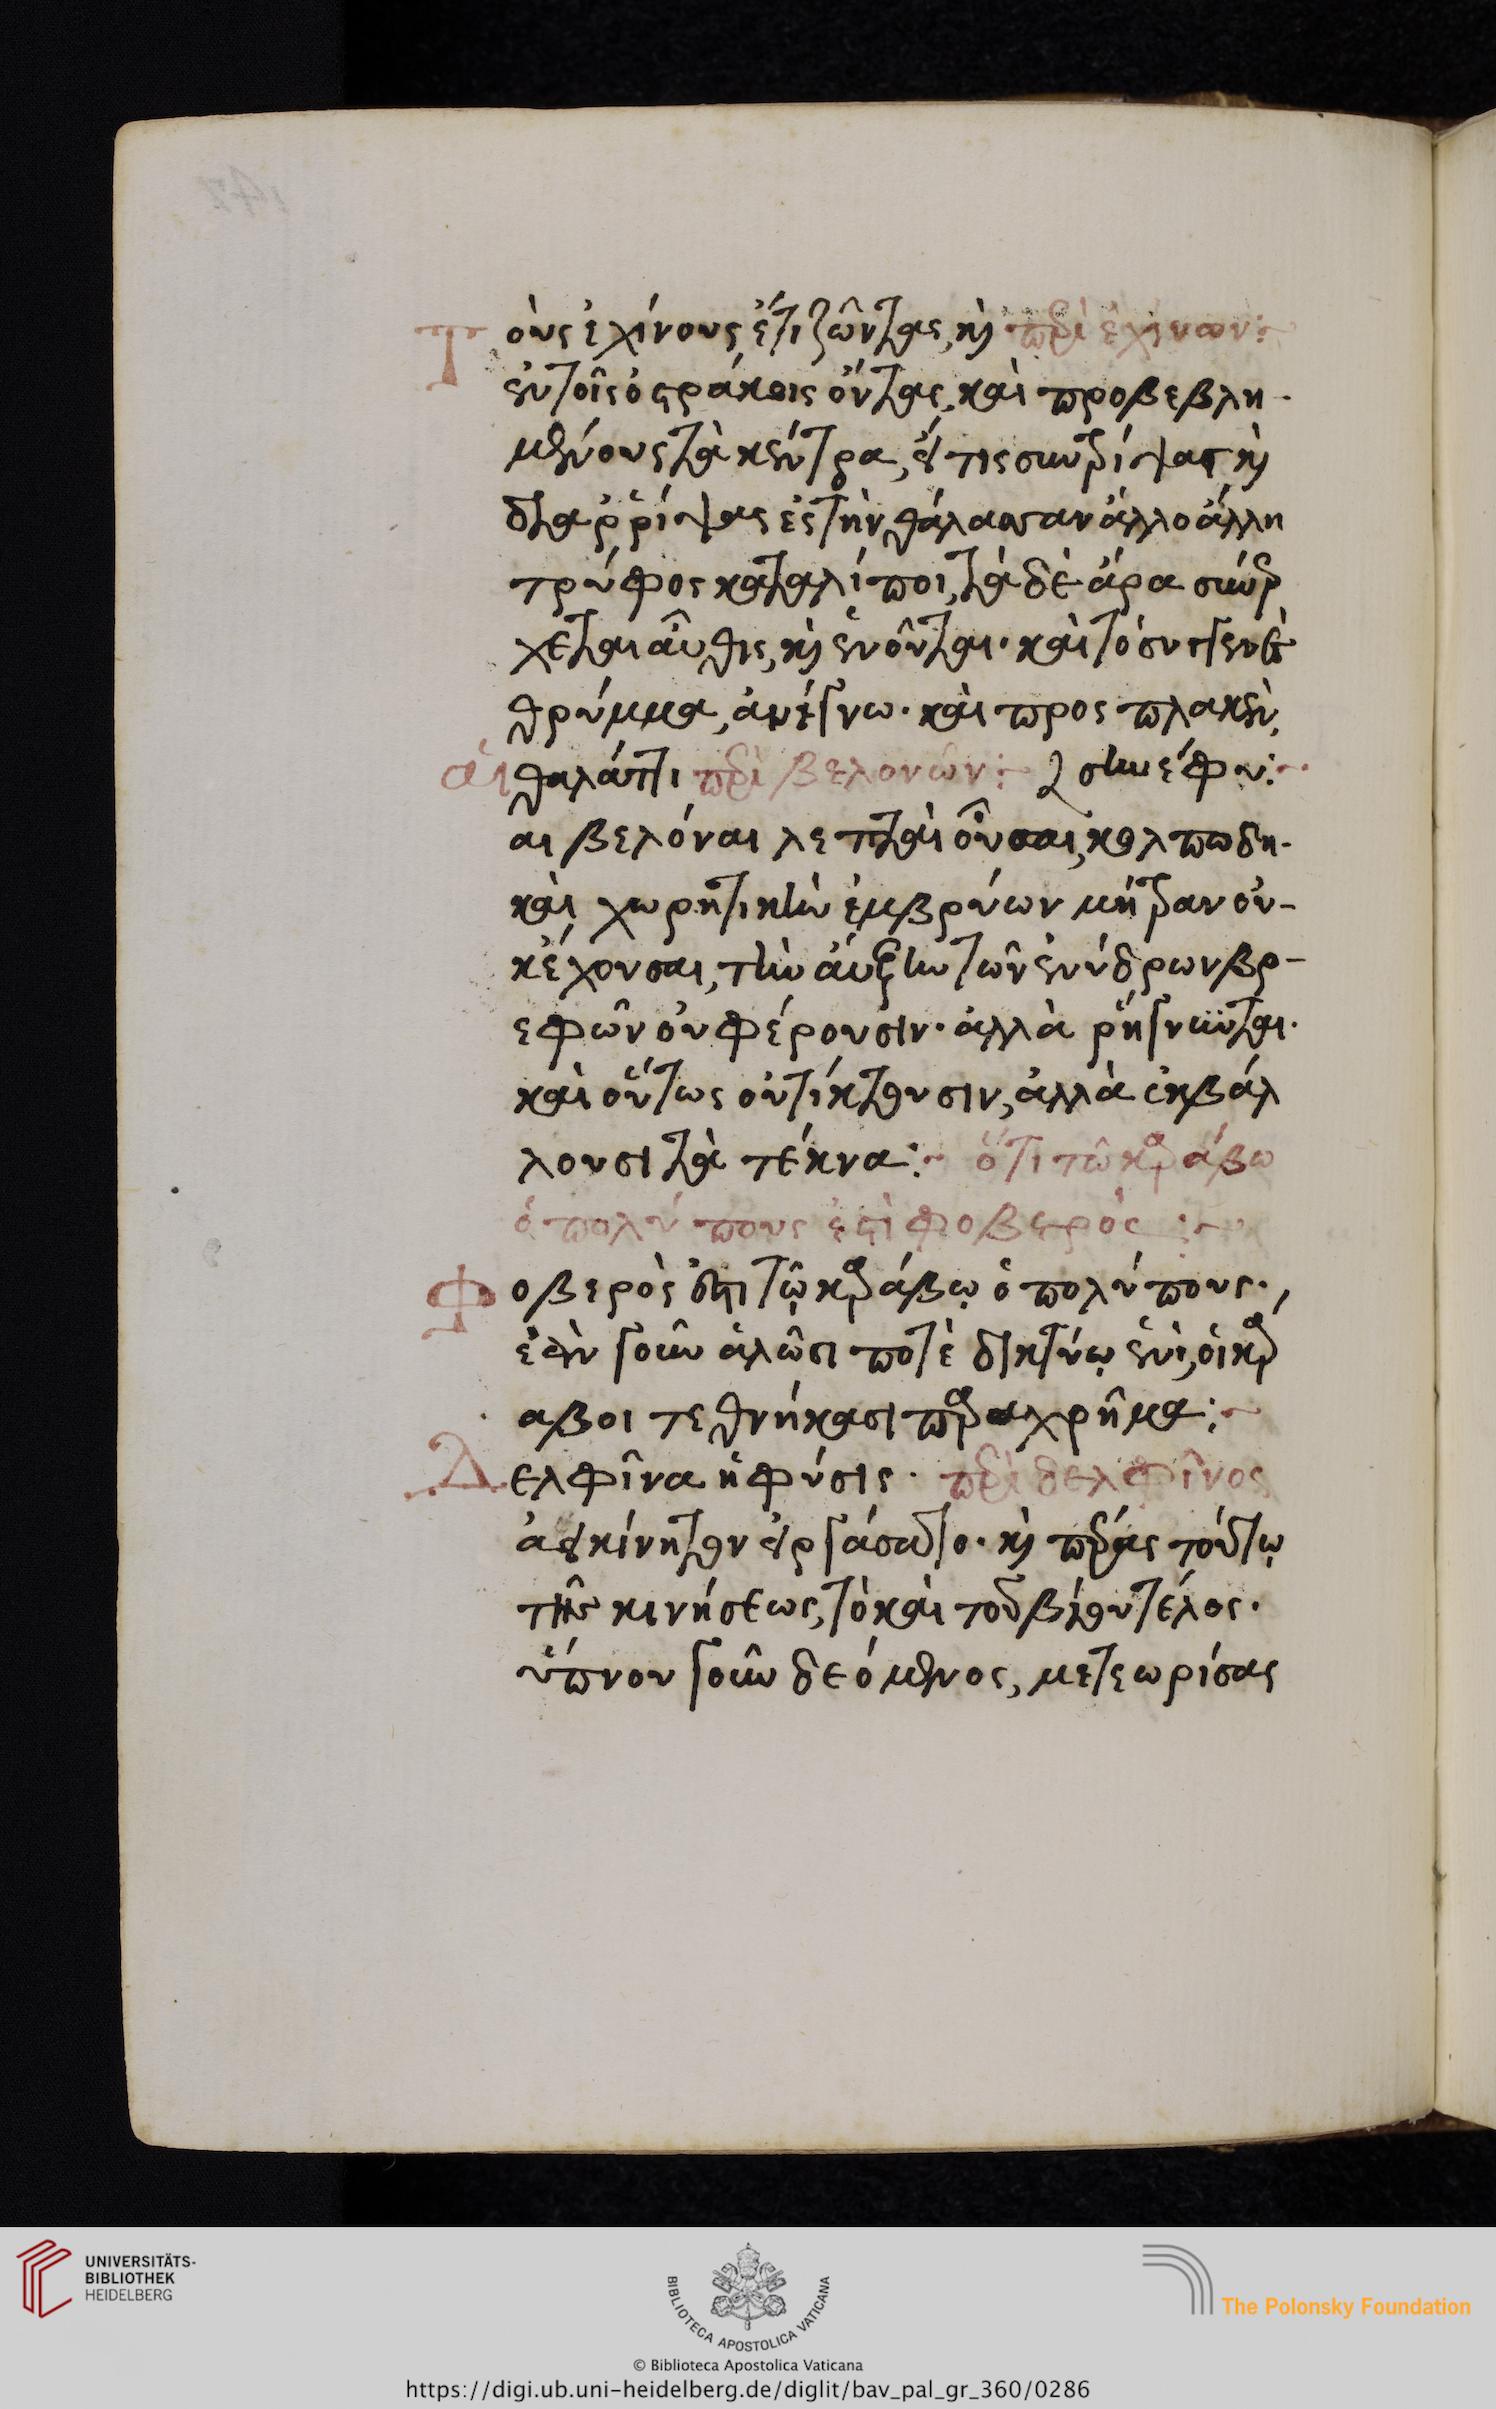 Τοὺς ἐχίνους ἔτι ζῶντας, κỳ περὶ ἐχίνων:
ἐν τοῖς ὀστράκοις ὄντας, καὶ προβεβλη-
μένους τὰ κέντρα, εἴ τις συντρίψας κỳ
διαρρίψας ἐς τὴν θάλασσαν ἄλλο ἄλλη
τρύφος καταλίποι, τὰ δὲ ἄρα συνέρ
χεται αὖθις, κỳ ἑνοῦται. καὶ τὸ συγγενὲς
θρύμμα, ἀνέγνω. καὶ προσπλακέν,
θαλάττι περὶ βελονῶν: συνέφυ:
αἱ αι βελόναι λεπταὶ οὖσαι, κολπώδη.
καὶ χωρητικὴν ἐμβρύων μήτραν οὐ-
κ ἔχουσαι, τὴν αὔξην τῶν ἐνύδρων βρ-
εφῶν οὐ φέρουσιν. ἀλλὰ ῥήγνυνται.
καὶ οὕτως οὐ τίκτουσιν, ἀλλὰ ἐκβάλ
λουσι τὰ τέκνα: ὅτι τῶ καράβω
ὁ πολύπους ἐστὶ φοβερός:
Φοβερὸς ἐστι τῷ καράβῳ ὁ πολύπους.,
ἐὰν γοῦν ἁλῶσι ποτὲ δικτύῳ ἑνὶ, οἱ καρ
αβοι τεθνήκασι παραχρῆμα:
Δελφῖνα ἡ φύσις. περὶ δελφῖνος
ἀεικίνητον εἰργάσατο. κỳ πέρας τούτῳ
τῆς κινήσεως, τὸ καὶ τοῦ βίου τέλος.
ὕπνου γοῦν δεόμενος, μετεωρίσας
UNIVERSITÄTS-
BIBLIOTHEK
HEIDELBERG
BIBLIOTECA APOSTOLICA VATICANA
The Polonsky Foundation
© Biblioteca Apostolica Vaticana
https://digi.ub.uni-heidelberg.de/diglit/bav_pal_gr_360/0286